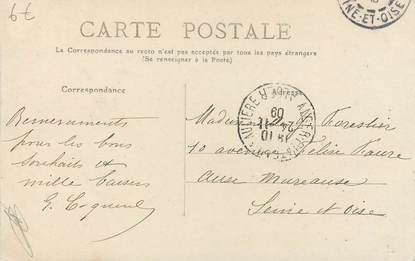 79
CARTE POSTALE
La Correspondance au recto n'est pas acceptée par tous les pays étrangers
(Se renseigner à la Poste)
Correspondance
Adresse
Remerciements
pour les bons
souhaits et
mille baisers
G.
Madame Forestier
10 avenue Félix Faure
Seine et Oise
INE-ET-OISE
09